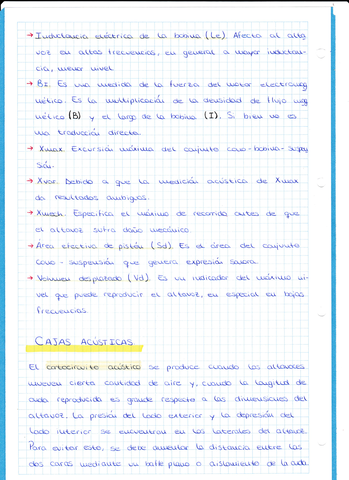 → Inductancia eléctrica de la bobina (Le). Afecta al alta
voz en altas frecuencias, en general a mayor inductan-
cia, menor nivel.
→ Bl. Es una medida de la fuerza del motor electromag
nético. Es la multiplicación de la densidad de flujo mag
nético (B) y el largo de la bobina (I). Si bien no es
una traducción directa.
→ Xmax. Excursión máxima del conjunto cono-bobina-suspen
sión.
→ Xvar. Debido a que la medición acústica de Xmax
da resultados ambiguos.
→ Xmech. Especifica el máximo de recorrido antes de que
el altavoz sufra daño mecánico.
→ Area efectiva de pistón (Sd). Es el área del conjunto
cono - suspensión que genera expresión sonora.
→ Volumen desplazado (Vd). Es un indicador del máximo ni-
vel que puede reproducir el altavoz, en especial en bajas
frecuencias.
CAJAS ACÚSTICAS
El cortocircuito acústico se produce cuando los altavoces
mueven cierta cantidad de aire y, cuando la longitud de
onda reproducida es grande respecto a las dimensiones del
altavoz. La presión del lado exterior y la depresión del
lado interior se encuentran en los laterales del altavoz.
Para evitar esto, se debe aumentar la distancia entre las
dos caras mediante un bafle plano o aislamiento de la onda